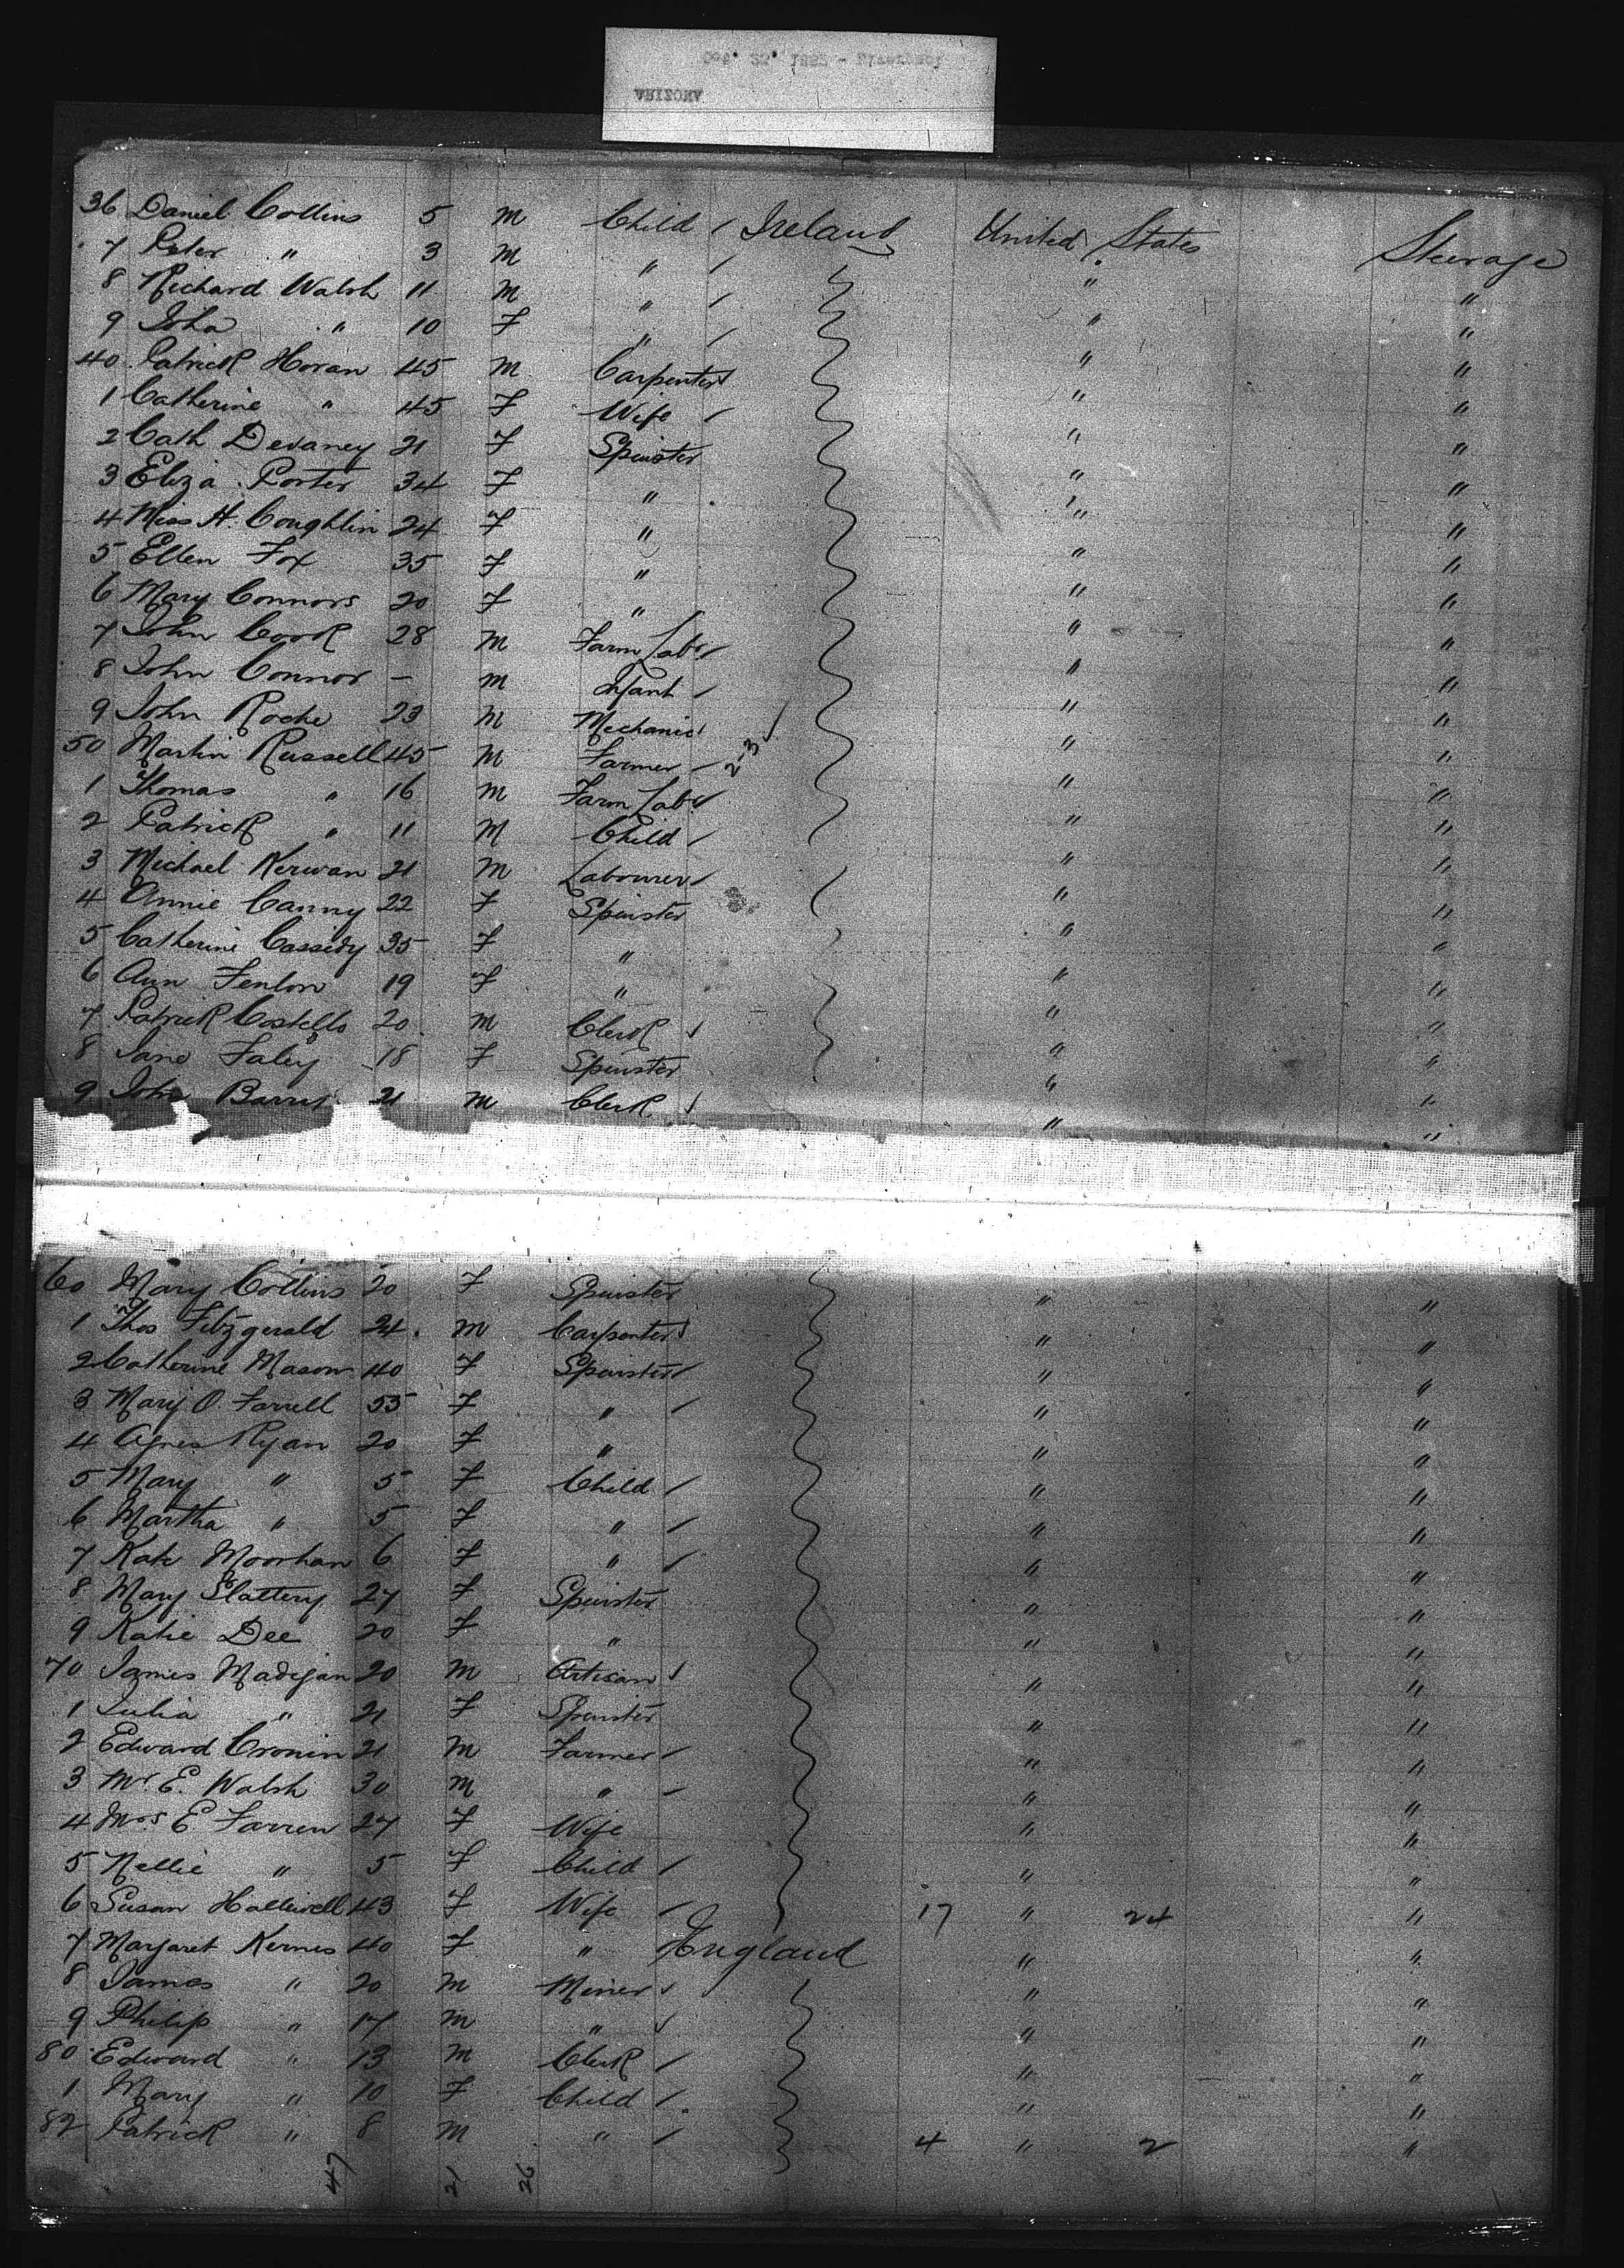 36 Daniel Collins 5 M Child / Ireland United States Steerage
7 Peter " 3 M " / " "
8 Richard Walsh 11 M " / " "
9 Joha " 10 F " / " "
40 Patrick Horan 45 M Carpenter " "
1 Catherine " 45 F Wife / " "
2 Cath Devaney 21 F Spinster " "
3 Eliza Porter 34 F " " "
4 Miss H. Coughlin 24 F " " "
5 Ellen Fox 35 F " " "
6 Mary Connors 20 F " " "
7 John Cook 28 M Farm Labr / " "
8 John Connor - M Infant / " "
9 John Roche 23 M Mechanic " "
50 Martin Russell 45 M Farmer / 2-3 " "
1 Thomas " 16 M Farm Labr " "
2 Patrick " 11 M Child / " "
3 Michael Kerwan 21 M Labourer / " "
4 Annie Canny 22 F Spinster " "
5 Catherine Cassidy 35 F " " "
6 Ann Fenlon 19 F " " "
7 Patrick Costello 20 M Clerk " "
8 Jane Faley 18 F Spinster " "
9 John 21 M Clerk " "
60 Mary Collins 20 F Spinster " "
1 Thos Fitzgerald 24 M Carpenter " "
2 Catherine Mason 40 F Spinster / " "
3 Mary O. Farrell 55 F " / " "
4 Agnes Ryan 20 F " " "
5 Mary " 5 F Child / " "
6 Martha " 5 F " / " "
7 Kate Moorhan 6 F " / " "
8 Mary Slattery 27 F Spinster " "
9 Katie Dee 20 F " " "
70 James Madigan 20 M Artisan " "
1 Julia " 21 F Spinster " "
2 Edward Cronin 21 M Farmer / " "
3 Mr. E. Walsh 30 M " / " "
4 Mrs E Farren 27 F Wife " "
5 Nellie " 5 F Child / " "
6 Susan Halliwell 43 F Wife / 17 " 24 "
7 Margaret Kernes 40 F " England " "
8 James " 20 M Miner " "
9 Philip " 17 M " " "
80 Edward " 13 M Clerk / " "
1 Mary " 10 F Child / " "
82 Patrick " 8 M " / 4 " 2 "
47 21 26